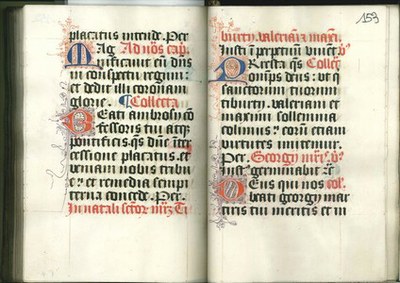 placatus intende. Per
Mag Ad nos cap.
Iustificauit eū dn̄s
in conspectu regum:
et dedit illi coronam
glorie. Collecta
Beati ambrosij cō
fessoris tui atq
pontificis. qs dn̄e int
cessione placatus. et
veniam nobis tribu
e: et remedia sempi
terna concede. Per.
In natali sctōr mr̄z Ti
153
burty. valeriani z maxi.
Iusti ī perpetuū viuent
Presta qs Collec
omnips deus: ut q
sanctorum tuorum
tiburty. valeriani et
maximi sollemnia
colimus: eorū etiam
virtutes imitemur.
Per. Georgy mr̄i.
Iust germinabit
Deus qui nos col.
beati georgy mar
tiris tui meritis et in